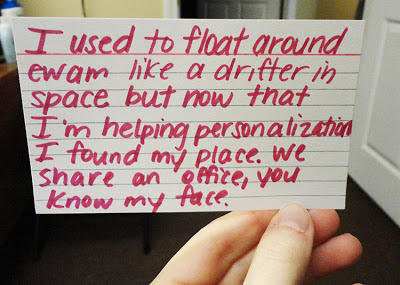 I used to float around
ewam like a drifter in
space but now that
I'm helping personalization
I found my place. We
share an office, you
know my face.